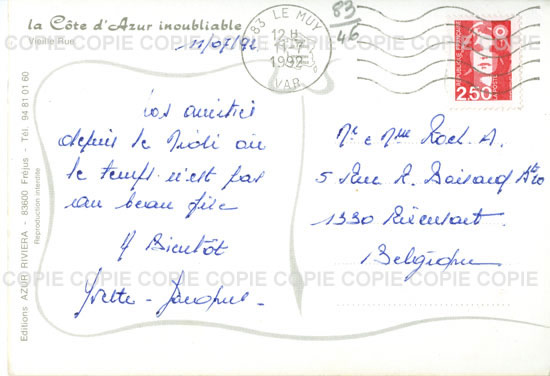 la Côte d'Azur inoubliable
Vieille Rue
11/07/92
83 LE MUY
12 H
11-7
1992
VAR
83
46
RÉPUBLIQUE FRANÇAISE
LA POSTE
2,50
Nos amitiés
depuis le Midi où
le temps n'est pas
au beau fixe
A Bientôt
Yvette - Jacques -
Mr e Mme Roch. A.
5 Rue R. Boisacq
1330 Rixensart.
Belgique
Editions AZUR RIVIERA - 83600 Fréjus - Tél. 94 81 01 60
Reproduction interdite
COPIE COPIE COPIE COPIE COPIE COPIE COPIE
COPIE COPIE COPIE COPIE COPIE COPIE COPIE
COPIE COPIE COPIE COPIE COPIE COPIE COPIE